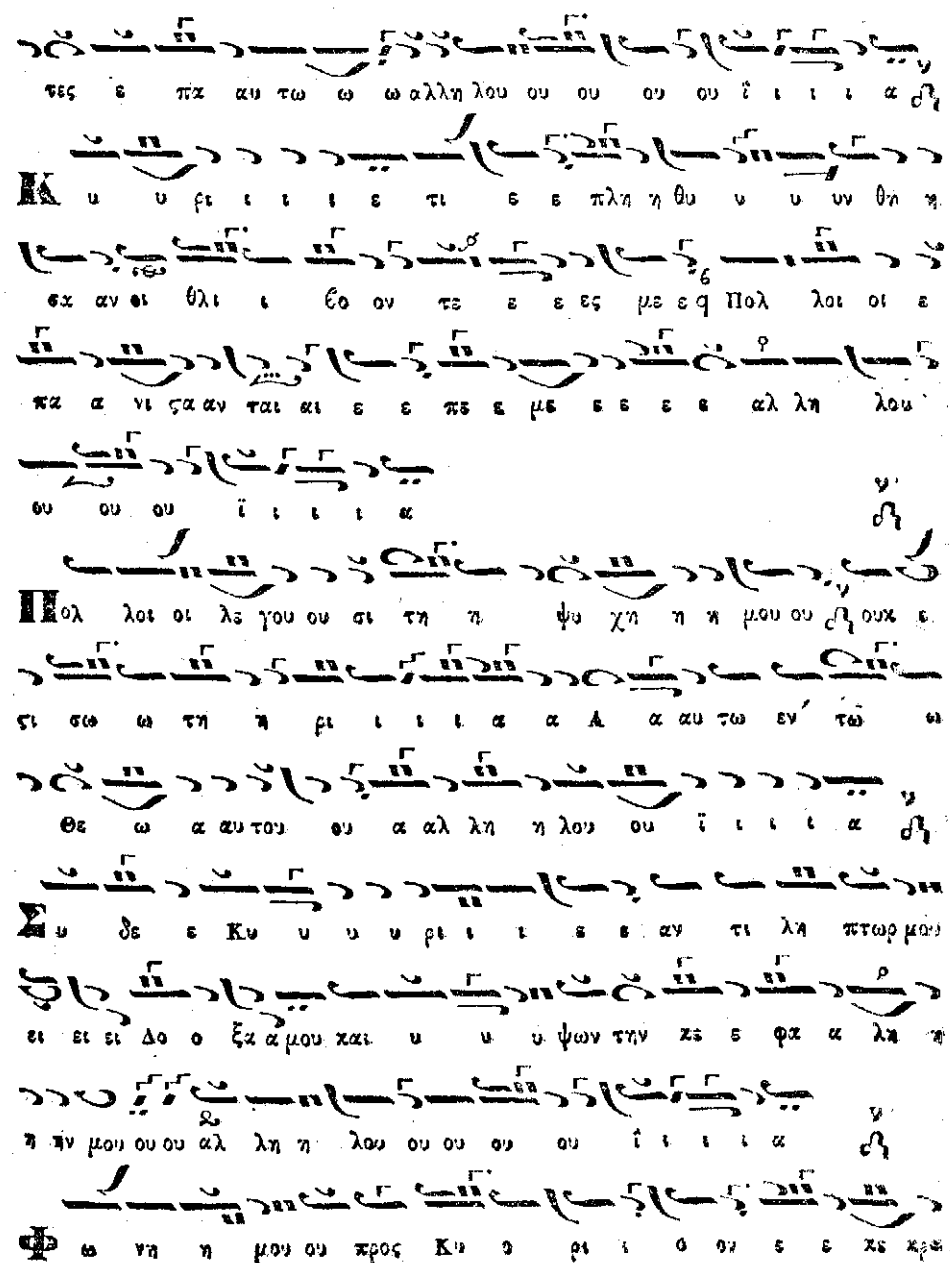 τες ε πα αυ τω ω ω αλλη λου ου ου ου ου ΐ ι ι ι α
Κ υ υ ρι ι ι ι ε τι ε ε πλη η θυ υ υ υν θη η
σα αν οι θλι ι βο ον τε ε ε ες με ε Πολ λοι οι ε
πα α νι ςα αν ται αι ε ε πε ε με ε ε ε ε αλ λη λου
ου ου ου ϊ ι ι ι α
Πολ λοι οι λε γου ου σι τη η ψυ χη η η μου ου ουκ ε
ςι σω ω τη η ρι ι ι ι α α Α α αυ τω εν τω ω
Θε ω α αυ του ου α αλ λη η λου ου ϊ ι ι ι α
Συ δε ε Κυ υ υ υ ρι ι ι ε ε αν τι λη πτωρ μου
ει ει ει Δο ο ξα α μου και υ υ υ ψων την κε ε φα α λη η
η ην μου ου ου αλ λη η λου ου ου ου ου ΐ ι ι ι α
Φ ω νη η μου ου προς Κυ υ ρι ι ο ον ε ε κε κρα